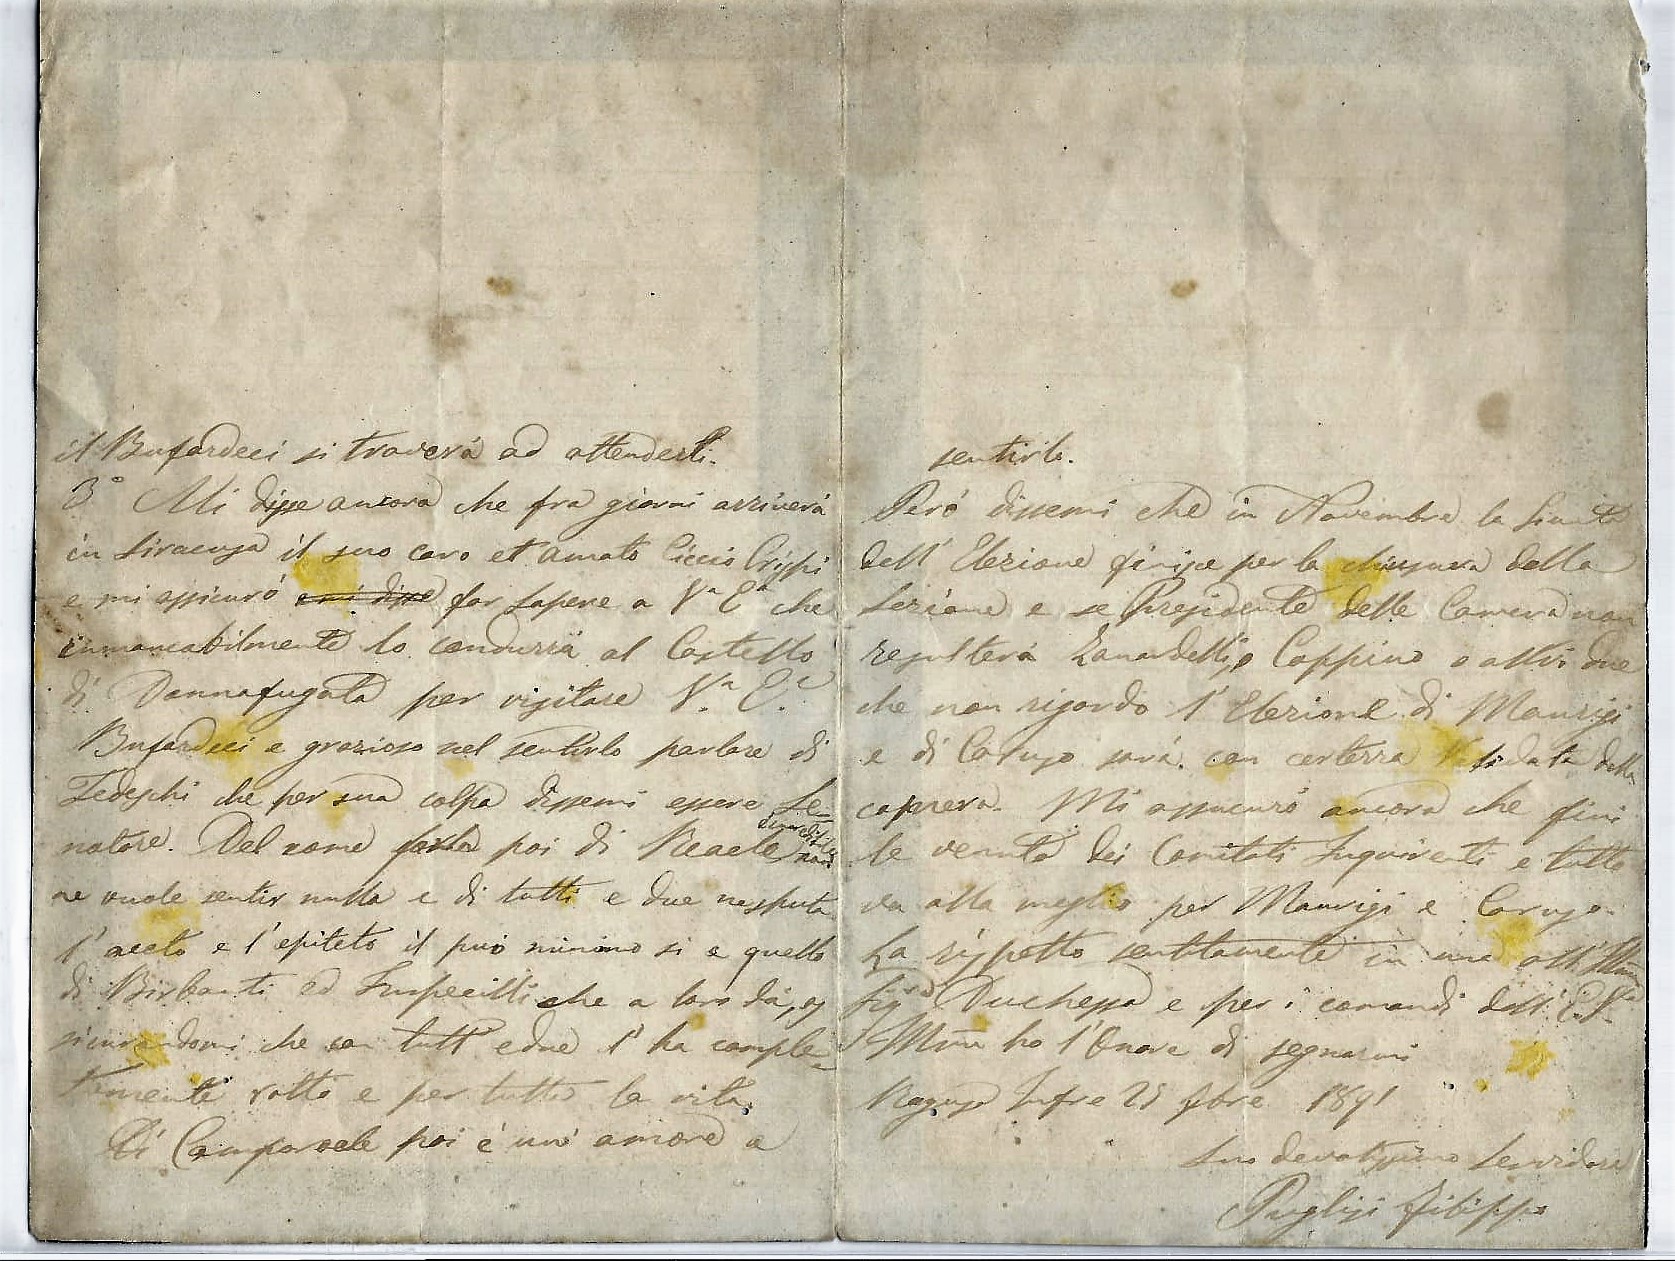 il Bufardeci si troverà ad attenderli.
3° Mi disse ancora che fra giorni arriverà
in Siracusa il suo caro et amato Ciccio Crispi
e mi assicurò e mi disse far sapere a Vª Eª che
inmancabilmente lo condurrà al Castello
di Donnafugata per visitare Vª. Eª.
Bufardeci e grazioso nel sentirlo parlare di
Tedeschi che per sua colpa dissemi essere Se=
natore. Del nome poi di Reale
non
ne vuole sentir nulla e di tutti e due
l' e l'epiteto il può minimo si e quello
di Birbanti ed Impecilli che a loro dà, as
sicurandomi che con tutt edue l'ha comple=
tamente rotto e per tutta la vita.
Di Camporeale poi è un' amore a
sentirlo.
Però dissemi che in Novembre la Giunta
dell' Elezione finisce per la chiusura della
Sezione e se Presidente della Camera non
resulterà Zanardelli, o Coppino o altri due
che non rigordo l'Elezione di Maurigi
e di Caruso sarà con certezza Validata dalla
capnera. Mi assicurò ancora che finì
la venuta dei Comitati Inquirenti e tutto
va alla meglio per Maurigi e Caruso.
La rispetto sentitamente in una all' Illma
Sigra Duchessa e per i comandi dell' E. Vª
Illma ho l'Onore di segnarmi
Ragusa Infre 25 8bre 1891
Suo devotissimo Servidore
Puglisi Filippo